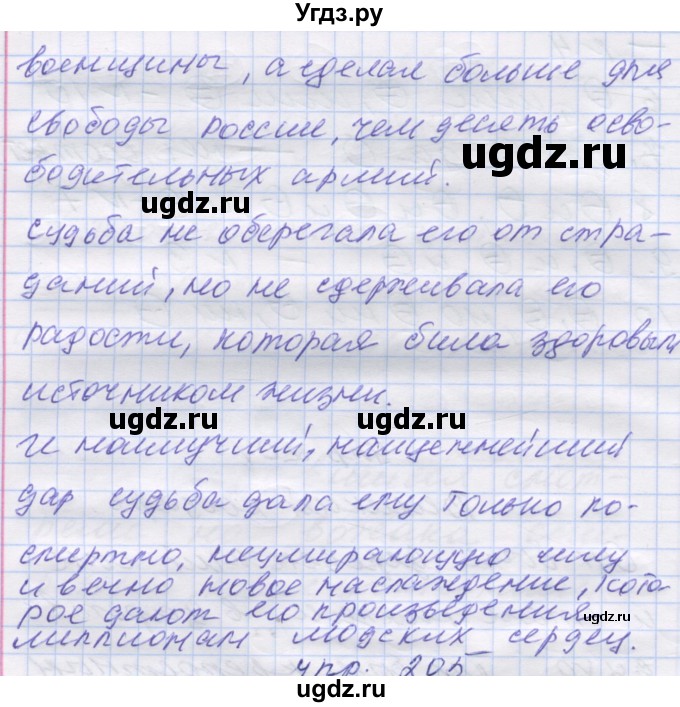 Угдз.ру
военщины, а сделал больше для
свободы россии, чем десять осво-
ugdz.ru
бодительных армий.
ugdz.ru
судьба не оберегала его от стра-
даний, но не сдерживала его
радости, которая была здоровым
источником жизни.
ugdz.ru
ugdz.ru
И наилучший, наиценнейший
дар судьба дала ему только по-
смертно, неумирающую силу
и вечно новое наслаждение, кото
рое дают его произведения
миллионам людских сердец.
ugdz.ru
упр. 205
ugdz.ru